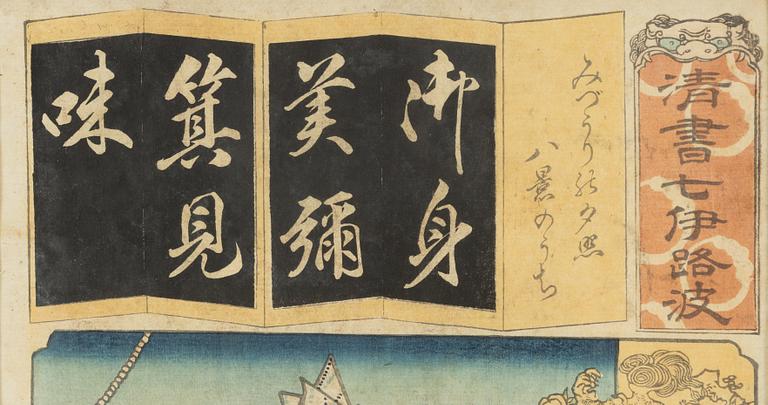 清書七伊路波
みづうりの夕照
八景のうち
御身
美彌
箕見
味